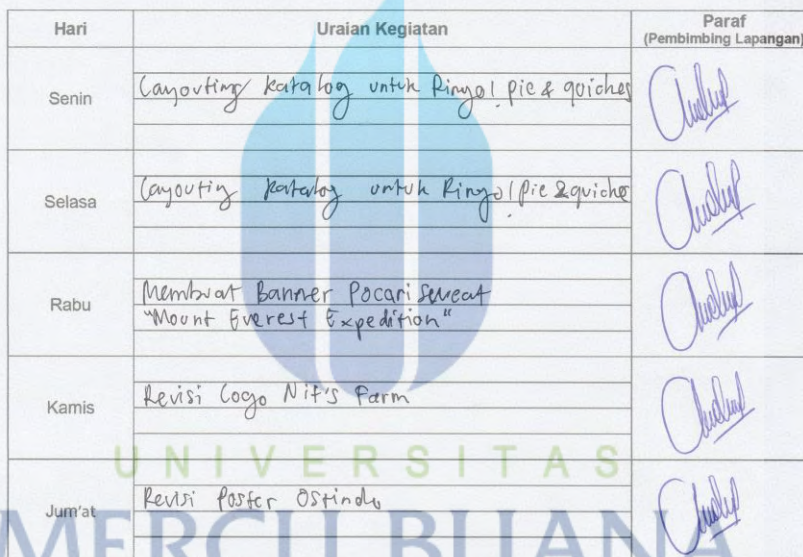 Hari Uraian Kegiatan Paraf
(Pembimbing Lapangan)
Senin Layouting katalog untuk Ringo! pie & quiches
Selasa Layouting katalog untuk Ringo! Pie & quiche
Rabu Membuat Banner Pocari Sweat
"Mount Everest Expedition"
Kamis Revisi Logo Nit's Farm
UNIVERSITAS
Jum'at Revisi Poster Ostindo
MERCU BUANA